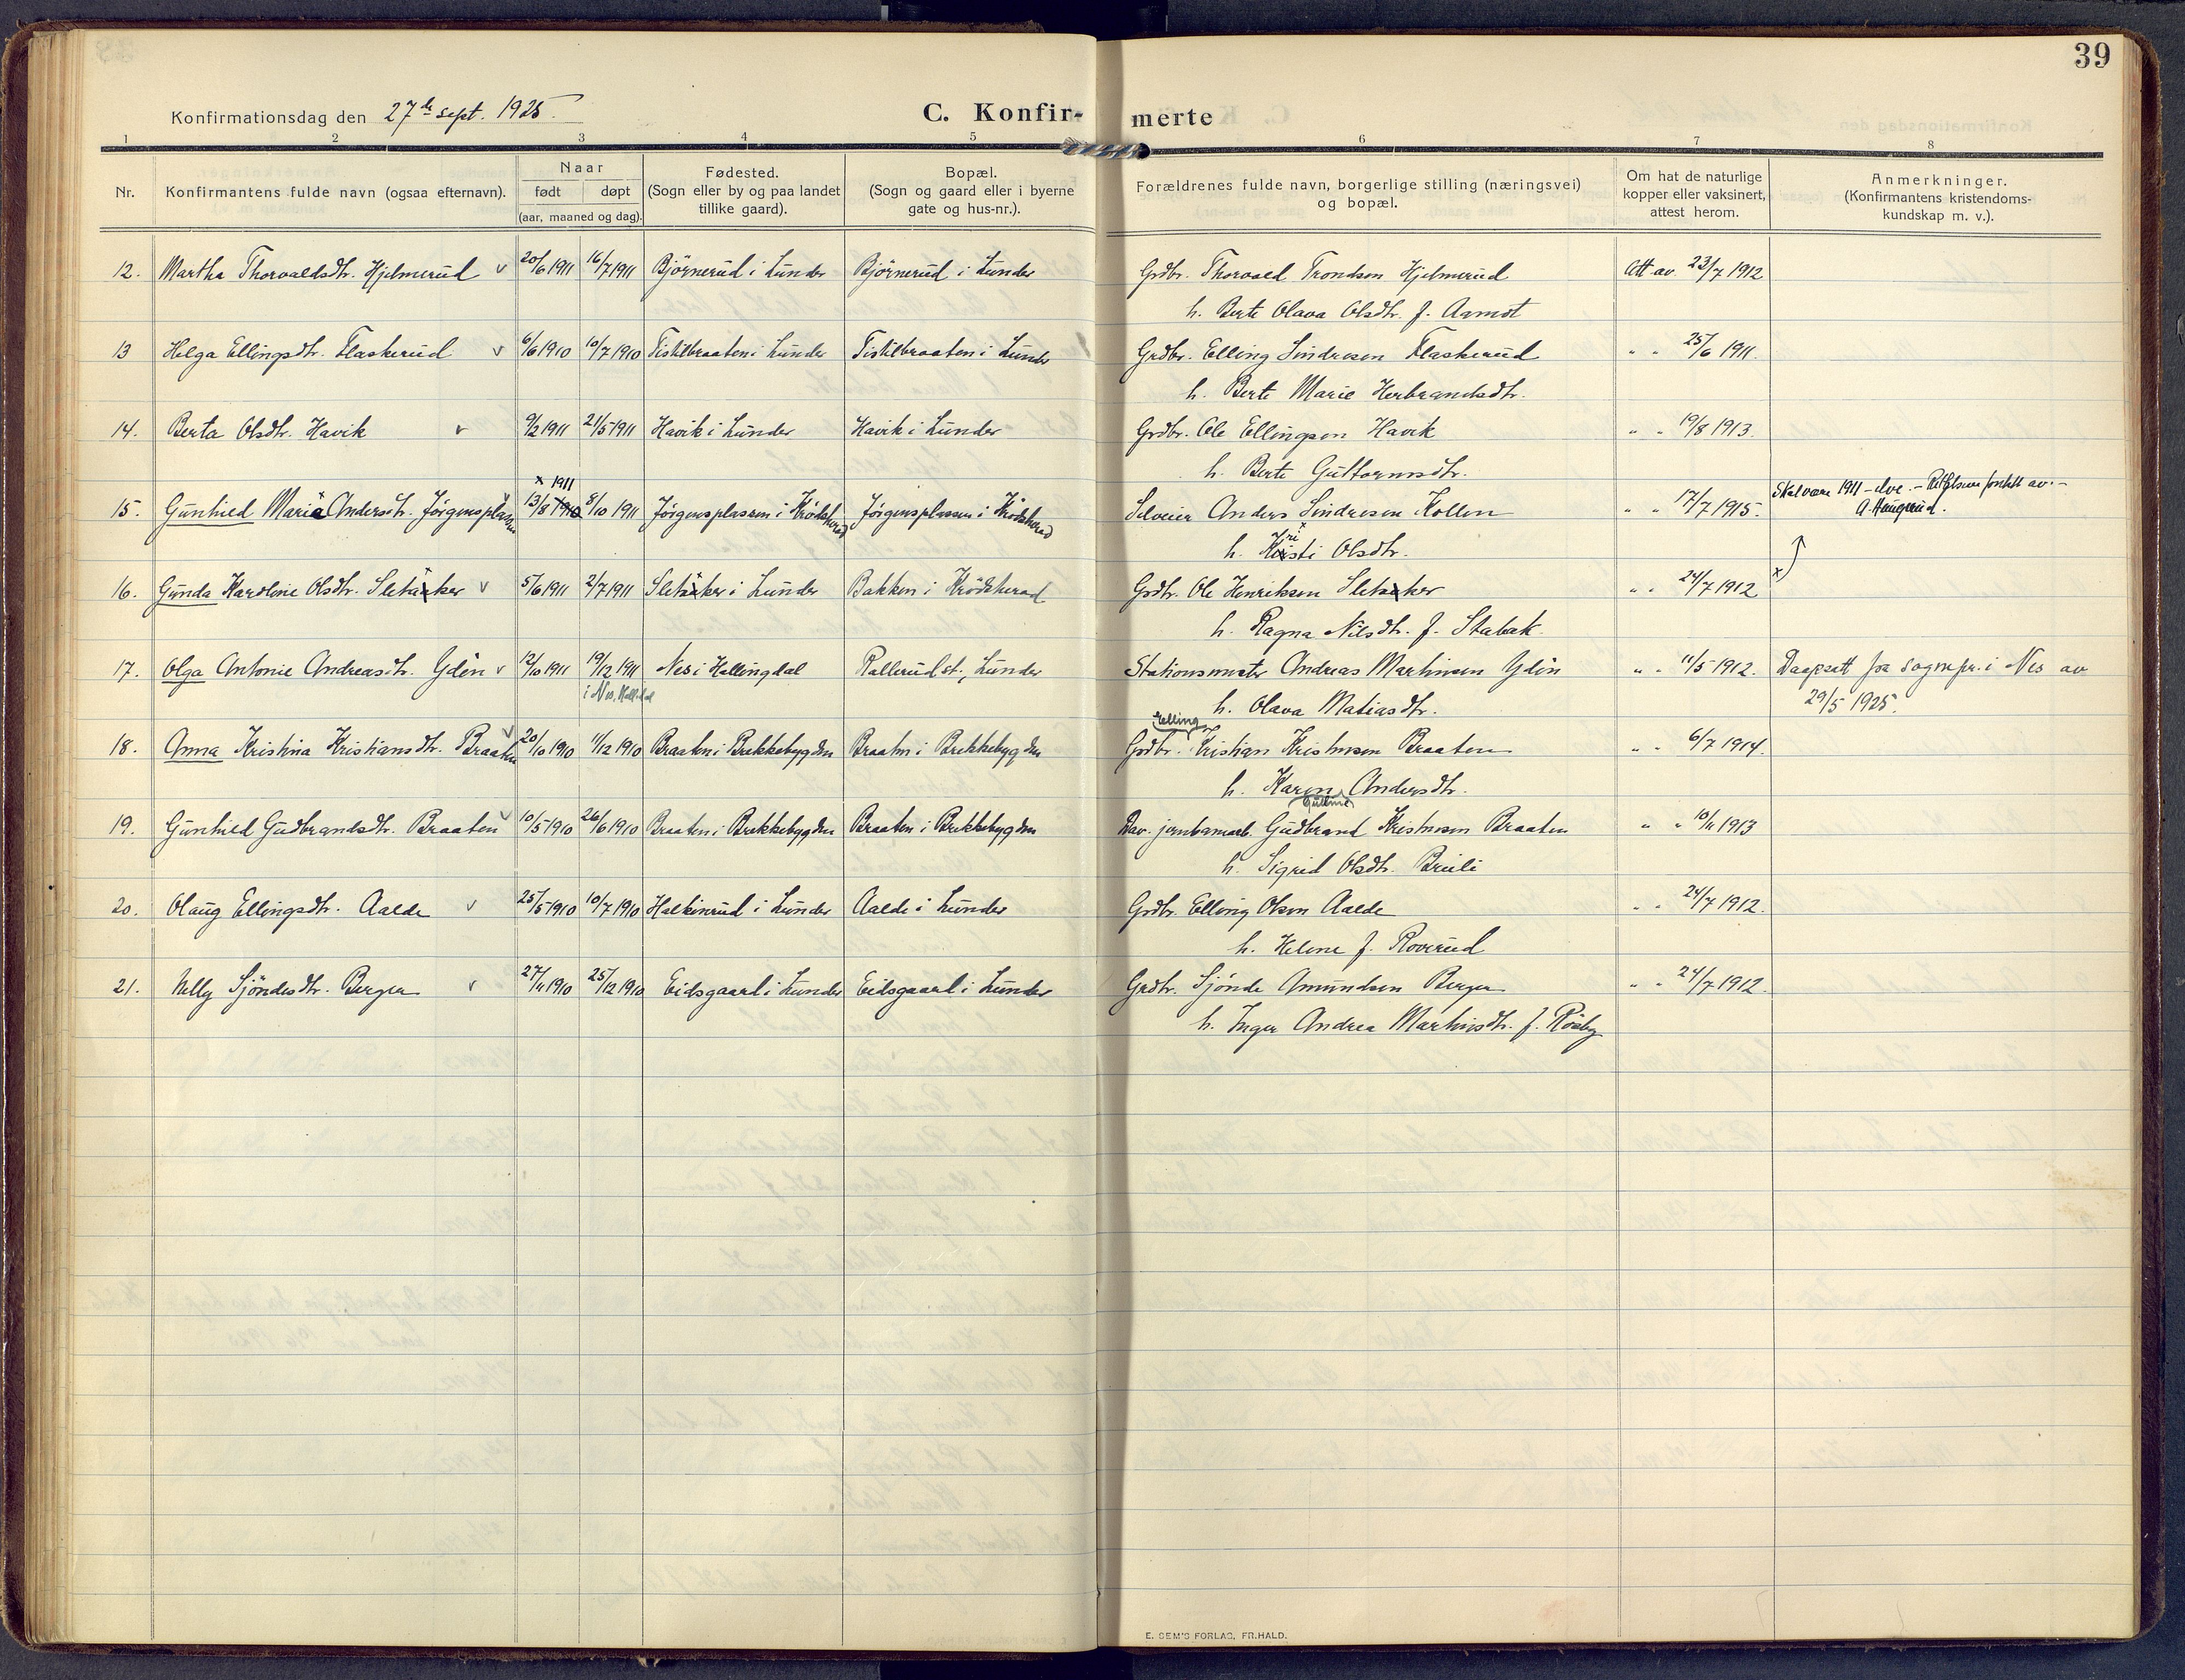 39
Konfirmationsdag den 27de sept. 1925.
C. Konfir-
merte
1 2 3 4 5 6 7 8
Nr.
Konfirmantens fulde navn (ogsaa efternavn).
Naar
født døpt
(aar, maaned og dag).
Fødested.
(Sogn eller by og paa landet
tillike gaard).
Bopæl.
(Sogn og gaard eller i byerne
gate og hus-nr.).
Forældrenes fulde navn, borgerlige stilling (næringsvei)
og bopæl.
Om hat de naturlige
kopper eller vaksinert,
attest herom.
Anmerkninger.
(Konfirmantens kristendoms-
kundskap m. v.).
12. Martha Thorvaldsdtr. Hjelmerud v 20/6 1911 16/7 1911 Bjørnerud i Lunder Bjørnerud i Lunder Grdbr. Thorvald Trondsen Hjelmerud Att av. 23/7 1912
h. Berte Olava Olsdtr. f. Aamot
13 Helga Ellingsdtr. Flaskerud v 6/6 1910 10/7 1910 Tistilbraaten i Lunder Tistilbraaten i Lunder Grdbr. Elling Sindresen Flaskerud " " 25/6 1911.
h. Berte Marie Herbrandsdtr.
14. Berta Olsdtr. Havik v 9/2 1911 21/5 1911 Havik i Lunder Havik i Lunder Grdbr. Ole Ellingsen Havik " " 19/8 1913.
h. Berte Guttormsdtr.
x 1911
15. Gunhild Marie Andersdtr. Jørgensplassen 13/8 1910 8/10 1911 Jørgensplassen i Krødsherad Jørgensplassen i Krødsherad Selveier Anders Sindresen Kollen " " 17/7 1915. Skal være 1911
A. Haugerud.
h. Kristi Olsdtr.
16. Gunda Karoline Olsdtr. Sletaker v 5/6 1911 2/7 1911 Sletaker i Lunder Bakken i Krødsherad Grdbr. Ole Henriksen Sletaker " " 24/7 1912 x
h. Ragna Nilsdtr. f. Stabak.
17. Olga Antonie Andreasdtr. Ydèn v 12/10 1911 19/12 1911 Nes i Hallingdal Rallerud st., Lunder Stationsmester Andreas Martinsen Ydèn " " 11/5 1912. Daapsatt fra sognepr. i Nes av
i Nes, Hallidal
h. Olava Matiasdtr.
29/5 1925.
Elling
18. Anna Kristina Kristiansdtr. Braaten v 20/10 1910 11/12 1910 Braaten i Brekkebygden Braaten i Brekkebygden Grdbr. Kristian Kristensen Braaten " " 6/7 1914.
h. Karen Andersdtr.
19. Gunhild Gudbrandsdtr. Braaten v 10/5 1910 26/6 1910 Braaten i Brekkebygden Braaten i Brekkebygden Dav. jernbanearb. Gudbrand Kristensen Braaten " " 10/11 1913
h. Sigrid Olsdtr. Bruli
20. Olaug Ellingsdtr. Aalde v 25/5 1910 10/7 1910 Halkinrud i Lunder Aalde i Lunder Grdbr. Elling Olsen Aalde " " 24/7 1912.
h. Helene f. Roverud
21. Nelly Sjøndesdtr. Berger v 27/11 1910 25/12 1910 Eidsgaard i Lunder Eidsgaard i Lunder Grdbr. Sjønde Amundsen Berger " " 24/7 1912.
h. Inger Andrea Martinsdtr. f. Røsby
E. SEM'S FORLAG, FR.HALD.